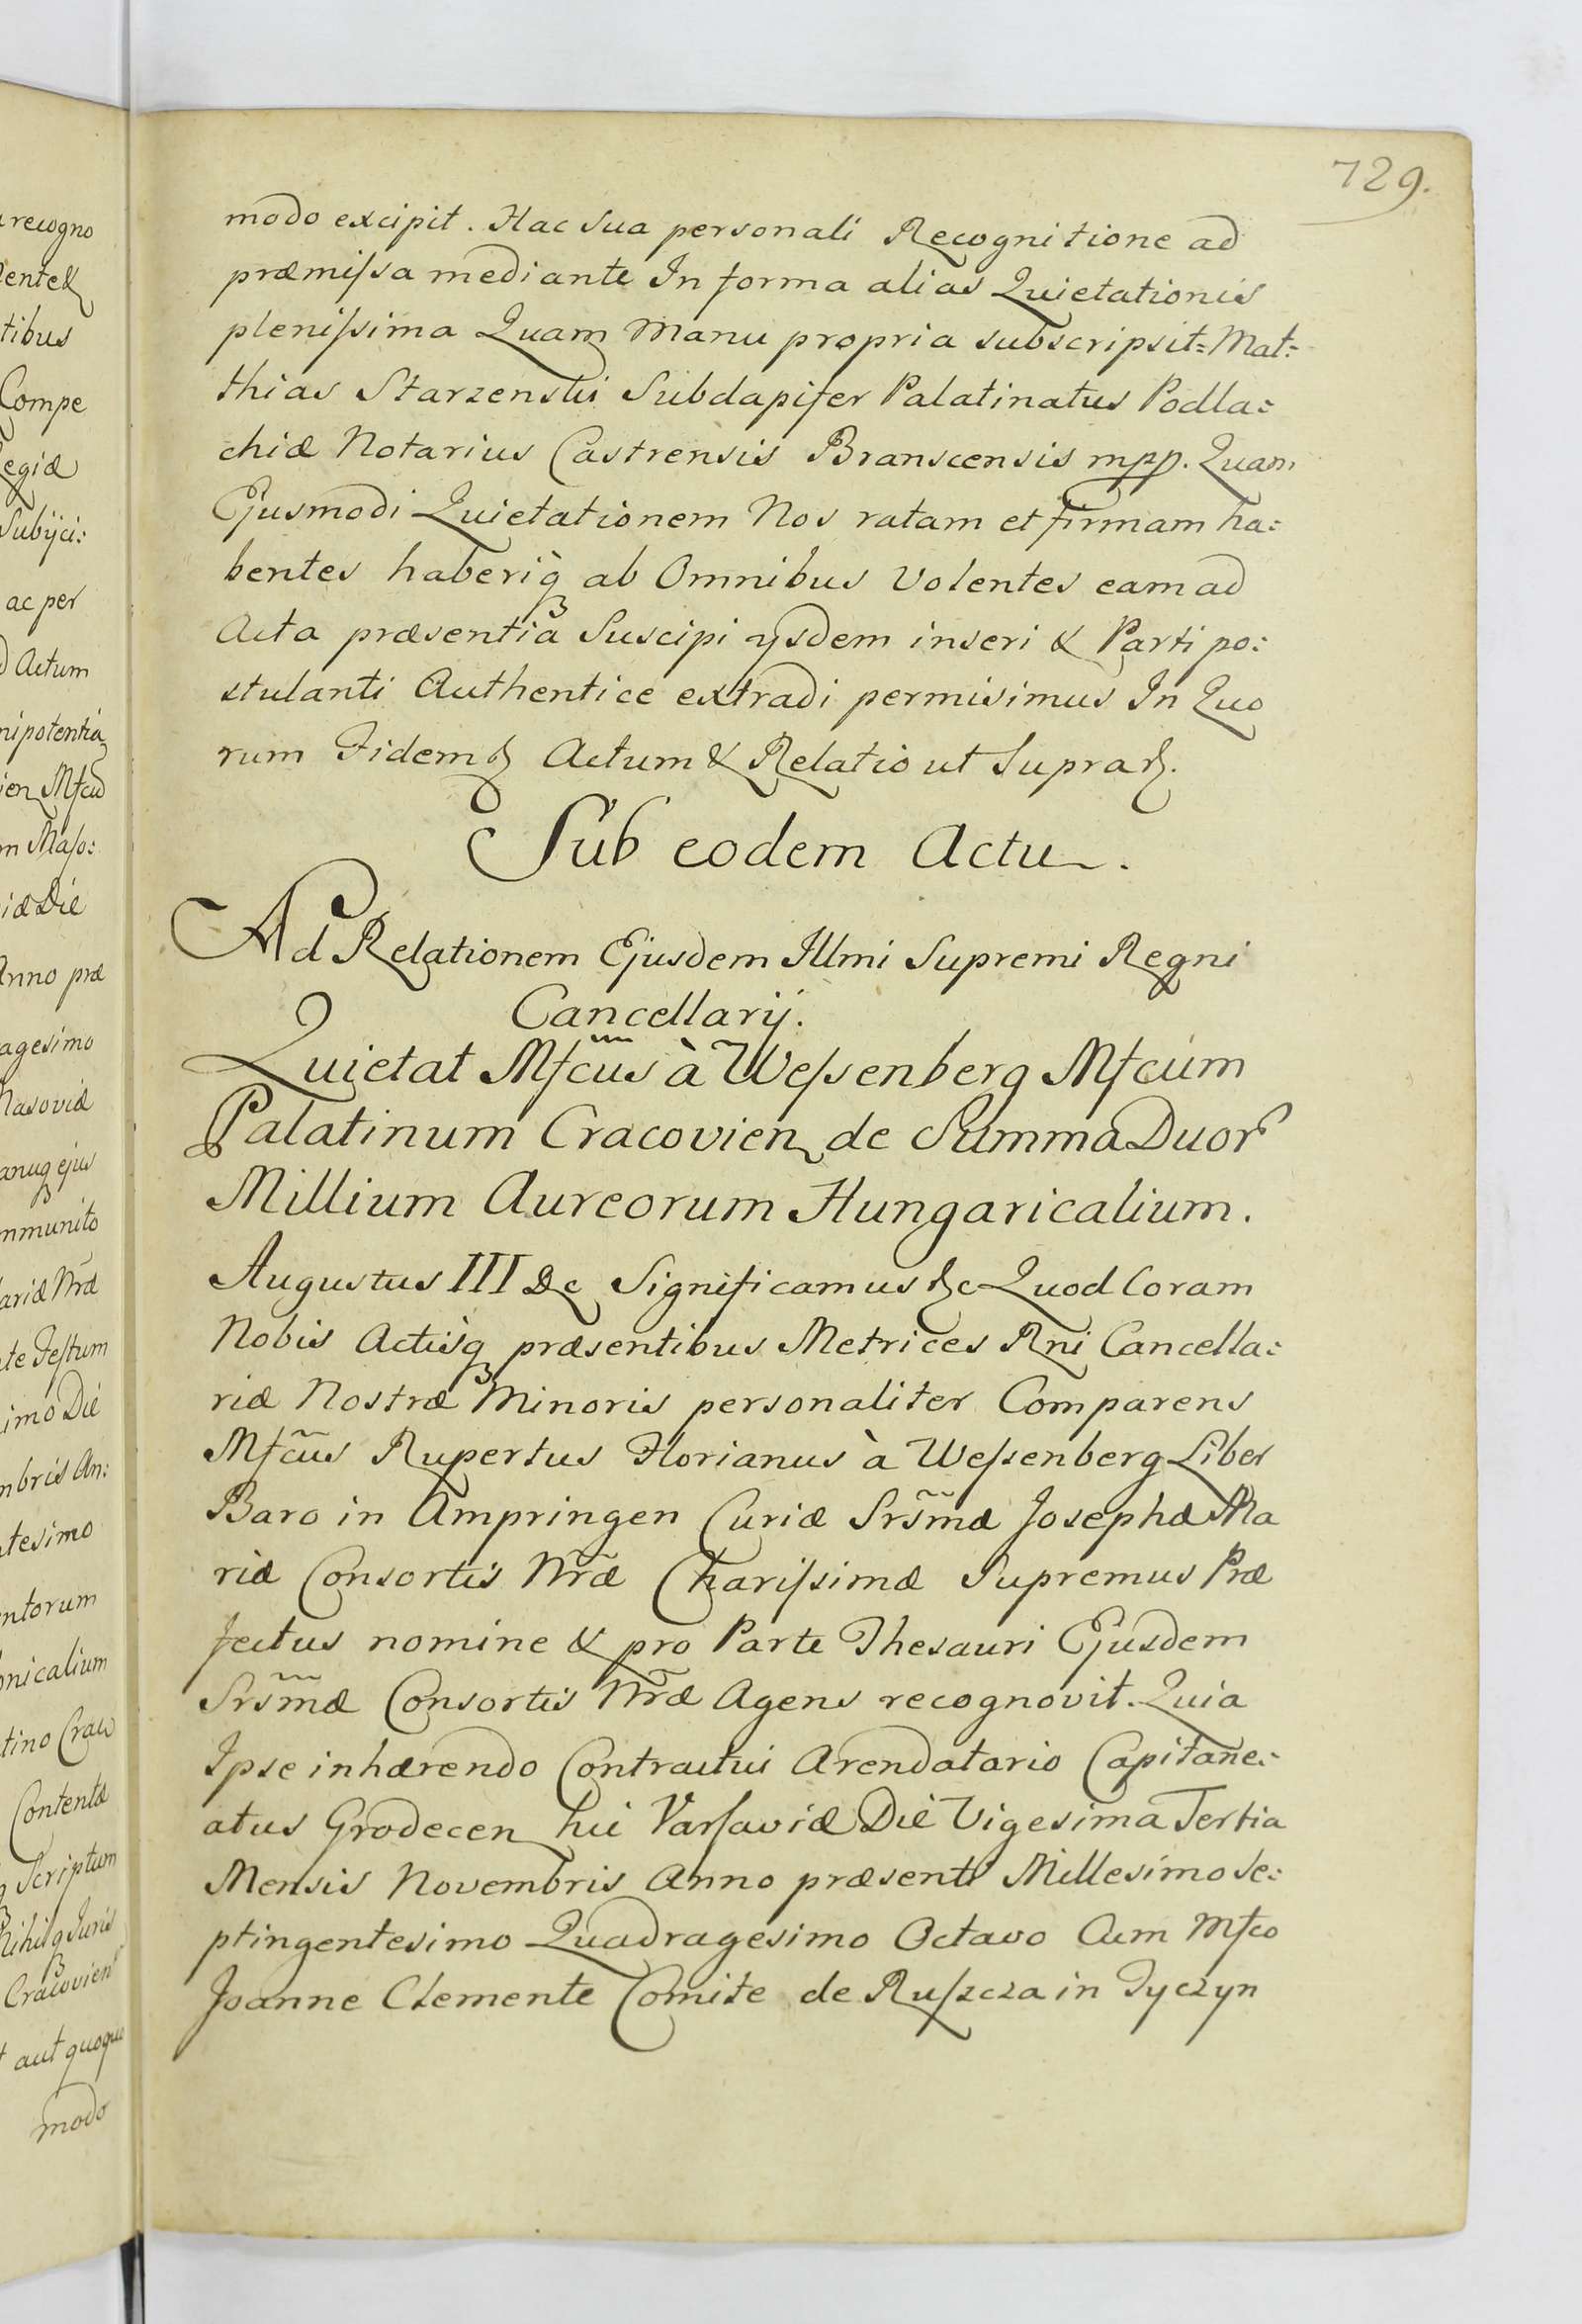 729.
modo excipit. Hac Sua personali Recognitione ad
præmissa mediante In forma alias Quietationis
plenissima Quam Manu propria subscripsit= Mat=
thias Starzenski Subdapifer Palatinatus Podla=
chiæ Notarius Castrensis Branscensis mpp. Quam
Ejusmodi Quietationem Nos ratam et firmam ha=
bentes haberiq ab Omnibus Volentes eam ad
Acta præsentia Suscipi ysdem inseri & Parti po=
stulanti Authentice extradi permisimus In Quo
rum Fidem & Actum & Relatio ut Supra &.
Sub eodem Actu.
Ad Relationem Ejusdem Illmi Supremi Regni
Cancellarij.
Quietat Mfcus à Wessenberg Mfcum
Palatinum Cracovien de Summa Duor
Millium Aureorum Hungaricalium.
Augustus III &c Significamus &c Quod Coram
Nobis Actisq præsentibus Metrices Rni Cancella=
riæ Nostræ Minoris personaliter Comparens
Mfcus Rupertus Florianus à Wessenberg Liber
Baro in Ampringen Curiæ Srsmæ Josephæ Ma
riæ Consortis Nræ Charissimæ Supremus Præ
fectus nomine & pro Parte Thesauri Ejusdem
Srsmæ Consortis Nræ Agens recognovit. Quia
Ipse inhærendo Contractui Arendatorio Capitane=
atus Grodecen hic Varsaviæ Die Vigesima Tertia
Mensis Novembris Anno præsenti Millesimo Se=
ptingentesimo Quadragesimo Octavo Cum Mfco
Joanne Clemente Comite de Ruszcza in Tyczyn